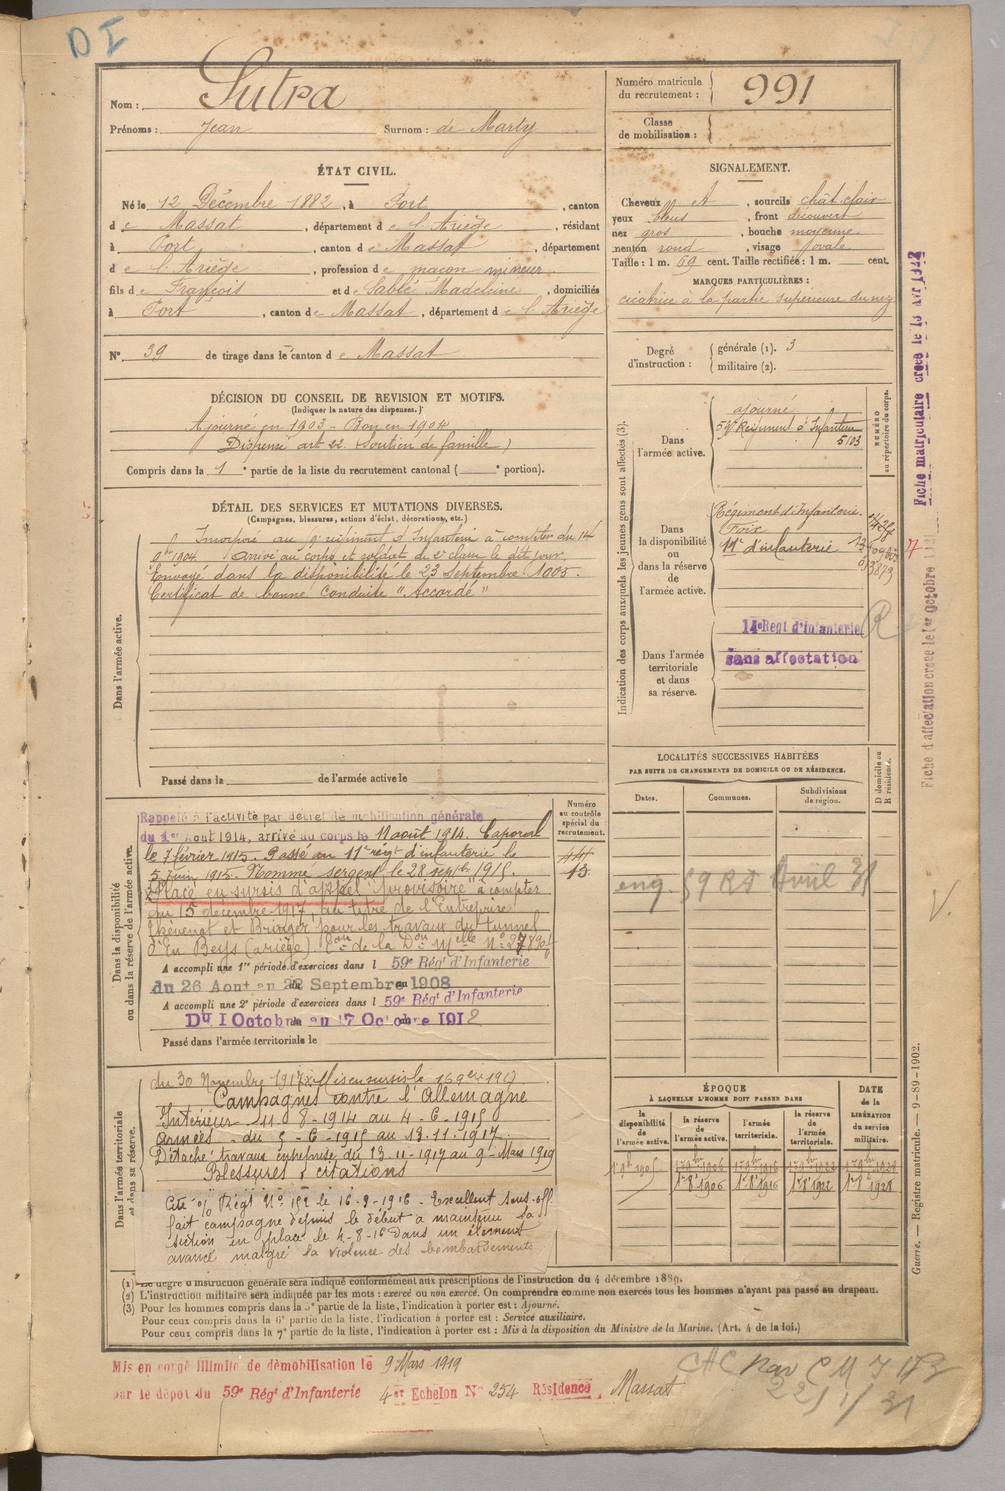 D I
Nom : Sutra
Prénoms : Jean Surnom : de Marty
Numéro matricule du recrutement : 991
Classe de mobilisation :
ÉTAT CIVIL.
Né le 12 Décembre 1882, à Port, canton
de Massat, département de l'Ariège, résidant
à Port, canton de Massat, département
de l'Ariège, profession de maçon mineur
fils de François et de Sablé Madeleine, domiciliés
à Port, canton de Massat, département de l'Ariège
N° 39 de tirage dans le canton de Massat
SIGNALEMENT.
Cheveux et, sourcils chât. clair
yeux bleus, front découvert
nez gros, bouche moyenne
menton rond, visage ovale
Taille : 1 m. 69 cent. Taille rectifiée : 1 m. cent.
MARQUES PARTICULIÈRES :
cicatrice à la partie supérieure du nez
Degré d'instruction : générale (1). 3
militaire (2).
DÉCISION DU CONSEIL DE REVISION ET MOTIFS.
(Indiquer la nature des dispenses.)
Ajourné en 1903 - Bon en 1904
Dispensé art 22. (Soutien de famille)
Compris dans la 1e partie de la liste du recrutement cantonal ( e portion).
DÉTAIL DES SERVICES ET MUTATIONS DIVERSES.
(Campagnes, blessures, actions d'éclat, décorations, etc.)
Dans l'armée active.
Incorporé au régiment d'Infanterie à compter du 14
9bre 1904. Arrivé au corps et soldat de 2e classe le dit jour.
Envoyé dans la disponibilité le 23 Septembre 1905.
Certificat de bonne conduite "Accordé"
Passé dans la de l'armée active le
Indication des corps auxquels les jeunes gens sont affectés (3).
NUMÉRO au répertoire du corps.
Dans l'armée active.
ajourné
59e Régiment d'Infanterie
5103
Dans la disponibilité ou dans la réserve de l'armée active.
Régiment d'Infanterie
Foix
11e d'infanterie
Dans l'armée territoriale et dans sa réserve.
14e Regt d'infanterie
sans affectation
R
Fiche matriculaire créée le
Fiche d'affectation créée le 1er octobre
LOCALITÉS SUCCESSIVES HABITÉES
PAR SUITE DE CHANGEMENTS DE DOMICILE OU DE RÉSIDENCE.
Dates. Communes. Subdivisions de région. D domicile ou R résidence.
59 RI Avril 31
Dans la disponibilité ou dans la réserve de l'armée active.
Numéro au contrôle spécial du recrutement.
Rappelé à l'activité par décret de mobilisation générale
du 1er Aout 1914, arrivé au corps le 11 août 1914. Caporal
le 7 février 1915. Passé au 11e régt d'infanterie le
5 juin 1915. Nommé sergent le 28 septbre 1915.
Placé en sursis d'appel "provisoire" à compter
du 15 décembre 1917, au titre de l'Entreprise
Thévenot et Bringer pour les travaux du tunnel
d'En Beys (ariège)
A accompli une 1re période d'exercices dans l 59e Régt d'Infanterie
du 26 Aout au 22 Septembre 1908
A accompli une 2e période d'exercices dans l 59e Régt d'Infanterie
Du 1 Octobre au 17 Octobre 1912
Passé dans l'armée territoriale le
Dans l'armée territoriale et dans sa réserve.
du 30 Novembre 1917
Campagnes contre l'Allemagne
Intérieur 11-8-1914 au 4-6-1915
armées - du 5-6-1915 au 13.11.1917.
Détaché : travaux entreprise du 13-11-1917 au 9 Mars 1919
Blessures & citations
Cité o/ Régt N° 152 le 16-9-1916 - Excellent sous-off
fait campagne depuis le début a maintenu sa
section en place le 4-8-16 dans un élément
avancé malgré la violence des bombardements
ÉPOQUE
À LAQUELLE L'HOMME DOIT PASSER DANS
la disponibilité de l'armée active. la réserve de l'armée active. l'armée territoriale. la réserve de l'armée territoriale.
DATE de la LIBÉRATION du service militaire.
1er 8bre 1906 1er 8bre 1916 1er 8bre 1922 1er 8bre 1928
Guerre. — Registre matricule. — 9-89-1902.
(1) Le degré d'instruction générale sera indiqué conformément aux prescriptions de l'instruction du 4 décembre 1889.
(2) L'instruction militaire sera indiquée par les mots : exercé ou non exercé. On comprendra comme non exercés tous les hommes n'ayant pas passé au drapeau.
(3) Pour les hommes compris dans la 5e partie de la liste, l'indication à porter est : Ajourné.
Pour ceux compris dans la 6e partie de la liste, l'indication à porter est : Service auxiliaire.
Pour ceux compris dans la 7e partie de la liste, l'indication à porter est : Mis à la disposition du Ministre de la Marine. (Art. 4 de la loi.)
Mis en congé illimité de démobilisation le 9 Mars 1919
par le dépôt du 59e Régt d'Infanterie 4er Echelon N° 254 Résidence Massat
22/1/31